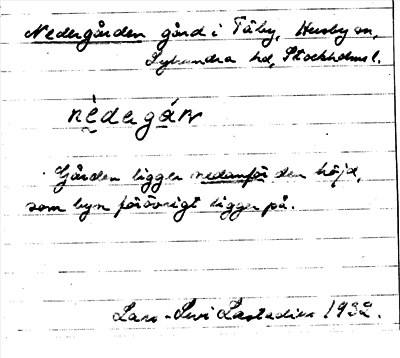 Nedergården gård i Täby, Husby sn,
Lyhundra hd, Stockholms l.
nèdegán
Gården ligger nedanför den höjd,
som byn förövrigt ligger på.
Lars-Levi Læstadius 1932.